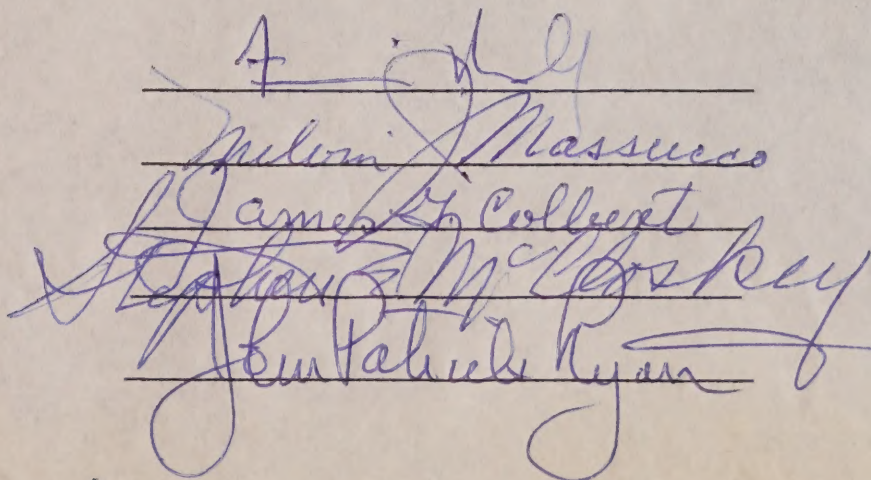 Melvin J. Massucco
James G. Colbert
Stephen E. McCloskey
John Patrick Ryan